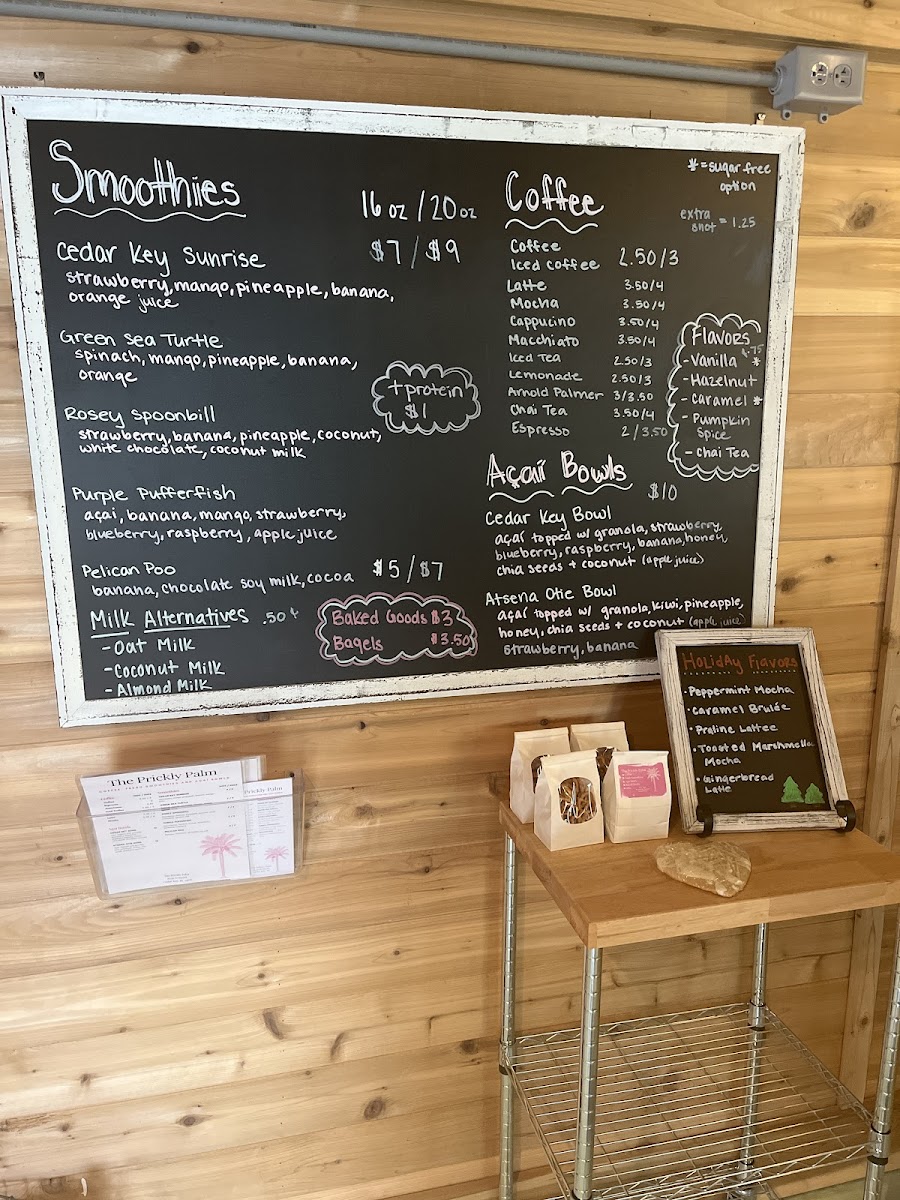 Smoothies
16 oz / 20 oz
$7 / $9
Cedar Key Sunrise
strawberry, mango, pineapple, banana,
orange juice
Green Sea Turtle
spinach, mango, pineapple, banana,
orange
+ protein
$1
Rosey Spoonbill
strawberry, banana, pineapple, coconut,
white chocolate, coconut milk
Purple Pufferfish
açai, banana, mango, strawberry,
blueberry, raspberry, apple juice
Pelican Poo $5 / $7
banana, chocolate soy milk, cocoa
Milk Alternatives .50¢
- Oat Milk
- Coconut Milk
- Almond Milk
Baked Goods $3
Bagels $3.50
Coffee
* = sugar free
option
extra
shot = 1.25
Coffee
Iced Coffee 2.50/3
Latte 3.50/4
Mocha 3.50/4
Cappucino 3.50/4
Macchiato 3.50/4
Iced Tea 2.50/3
Lemonade 2.50/3
Arnold Palmer 3/3.50
Chai Tea 3.50/4
Espresso 2/3.50
Flavors
- Vanilla *
- Hazelnut
- Caramel *
- Pumpkin
Spice
- Chai Tea
Açaí Bowls
$10
Cedar Key Bowl
açaí topped w/ granola, strawberry,
blueberry, raspberry, banana, honey,
chia seeds + coconut (apple juice)
Atsena Otie Bowl
açaí topped w/ granola, kiwi, pineapple,
honey, chia seeds + coconut (apple juice)
strawberry, banana
Holiday Flavors
• Peppermint Mocha
• Caramel Brulée
• Praline Lattee
• Toasted Marshmello
Mocha
• Gingerbread
Latte
The Prickly Palm
Prickly Palm